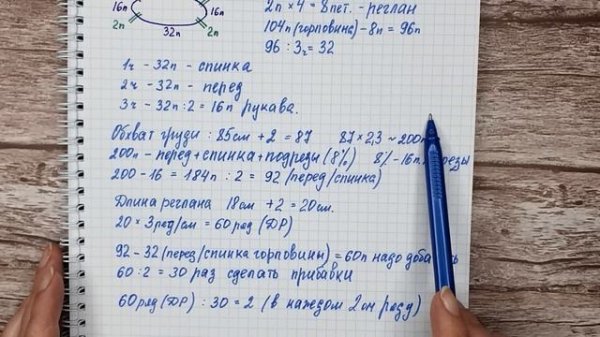 16п
16п
2п
32п
2п
2п × 4 = 8пет. - реглан
104п (горловина) - 8п = 96п
96 : 3ч = 32
1ч - 32п - спинка
2ч - 32п - перед
3ч - 32п : 2 = 16п рукава.
Обхват груди : 85см + 2 = 87 87 × 2,3 ~ 200п
200п - перед + спинка + подрези (8%) 8% - 16п,
200 - 16 = 184п : 2 = 92 (перед/спинка)
Длина реглана 18см + 2 = 20см.
20 × 3ряд/см = 60ряд (ДР)
92 - 32 (перед/спинка горловины) = 60п надо
60 : 2 = 30 раз сделать прибавки
60ряд (ДР) : 30 = 2 (в каждом 2ом ряду)